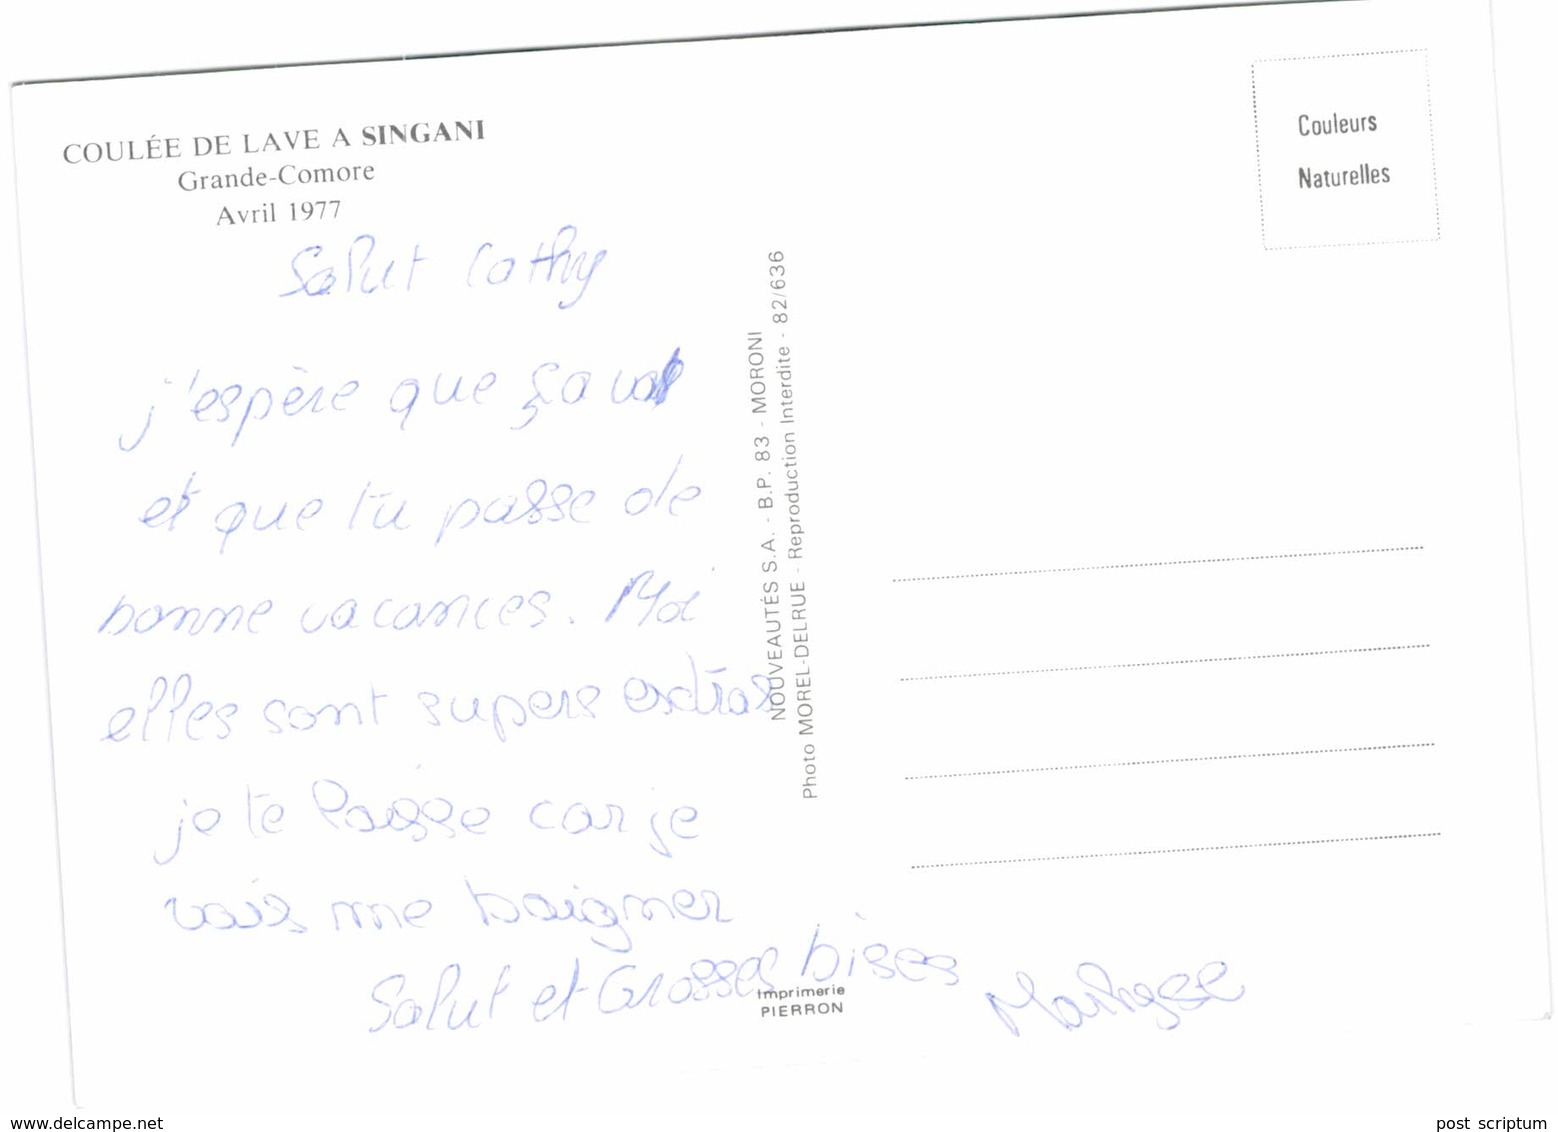 COULÉE DE LAVE A SINGANI
Grande-Comore
Avril 1977
Salut Cathy
j'espère que ça va
et que tu passe de
bonne vacances. Moi
elles sont supers extras
je te laisse car je
vais me baigner
Salut et Grosses bises
NOUVEAUTÉS S.A. - B.P. 83 - MORONI
Photo MOREL-DELRUE - Reproduction Interdite - 82/636
Imprimerie
PIERRON
Couleurs
Naturelles
www.delcampe.net
post scriptum